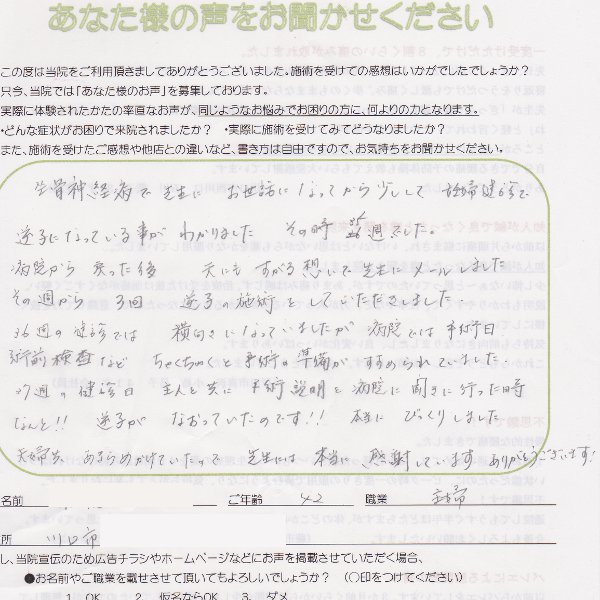 あなた様の声をお聞かせください
この度は当院をご利用頂きましてありがとうございました。施術を受けての感想はいかがでしたでしょうか?
只今、当院では「あなた様のお声」を募集しております。
実際に体験されたかたの率直なお声が、同じようなお悩みでお困りの方に、何よりの力となります。
・どんな症状がお困りで来院されましたか? ・実際に施術を受けてみてどうなりましたか?
また、施術を受けたご感想や他店との違いなど、書き方は自由ですので、お気持ちをお聞かせください。
坐骨神経痛で先生に お世話になってから少しして 妊婦健診で
逆子になっている事が わかりました その時 週でした。
病院から 戻った後 天にも すがる想いで先生に メールしました
その週から 3回 逆子の施術を していただきました
36週の健診では 横向きになっていましたが 病院では 手術日
術前検査など ちゃくちゃくと手術の準備が すすめられていました。
37週の健診日 主人と共に 手術説明を病院に聞きに行った時
なんと!! 逆子が なおっていたのです!! 本当に びっくりしました
夫婦共 あきらめかけていたので 先生には本当に 感謝しています ありがとうございます!
名前 ご年齢 42 職業 主婦
所 川口市
し、当院宣伝のため広告チラシやホームページなどにお声を掲載させていただく場合、
●お名前やご職業を載せさせて頂いてもよろしいでしょうか? (○印をつけてください)
1. OK 2. 仮名ならOK 3. ダメ